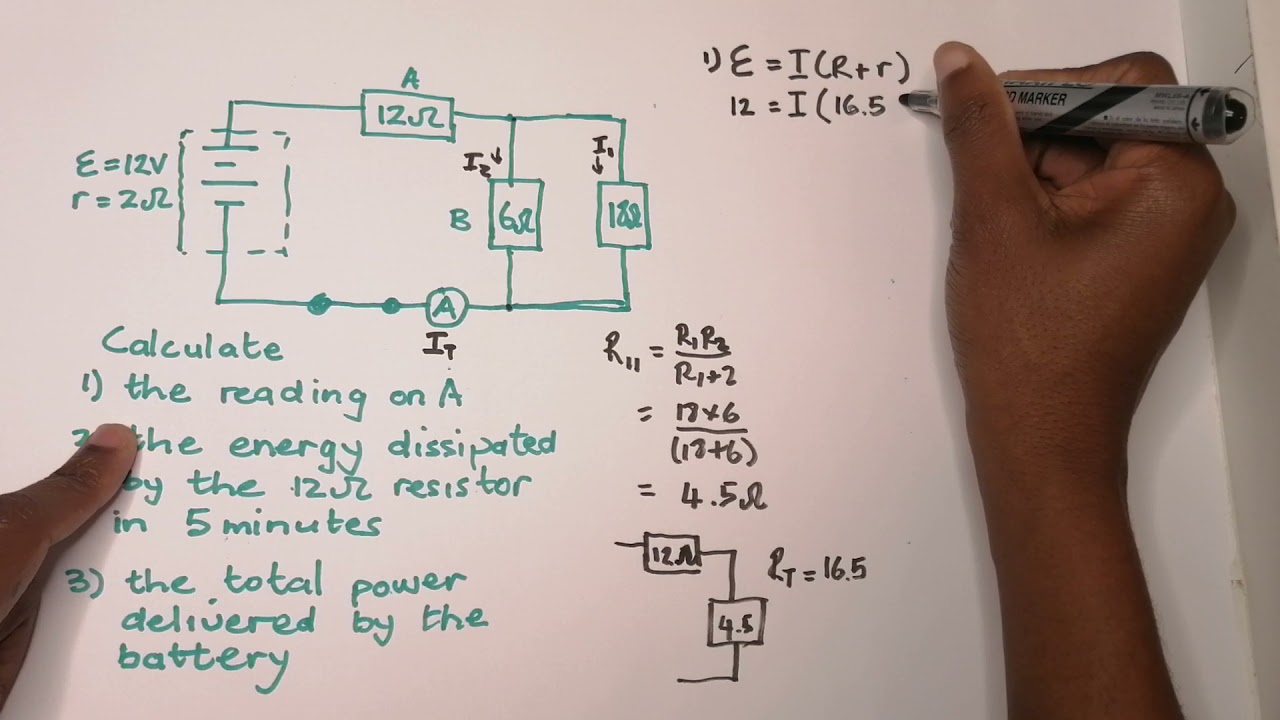 A
12Ω
ε=12V
r=2Ω
I₂
I₁
B
6Ω
18Ω
A
I_T
Calculate
1) the reading on A
the energy dissipated
by the 12Ω resistor
in 5 minutes
3) the total power
delivered by the
battery
R₁₁ = R₁R₂
R₁+2
= 18×6
(18+6)
= 4.5Ω
12Ω
4.5
R_T = 16.5
1) ε = I(R+r)
12 = I(16.5
D MARKER